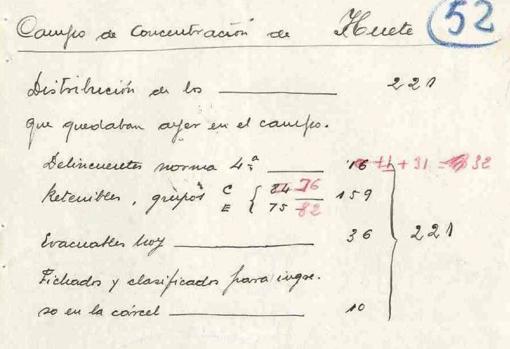 Campo de Concentración de Huete 52
Distribución de los 221
que quedaban ayer en el campo.
Delincuentes norma 4.ª 16 + 31 = 32
Retenibles, grupos C { 84 76 159
E 75 82
Evacuables hoy 36 221
Fichados y clasificados para ingre-
so en la cárcel 10